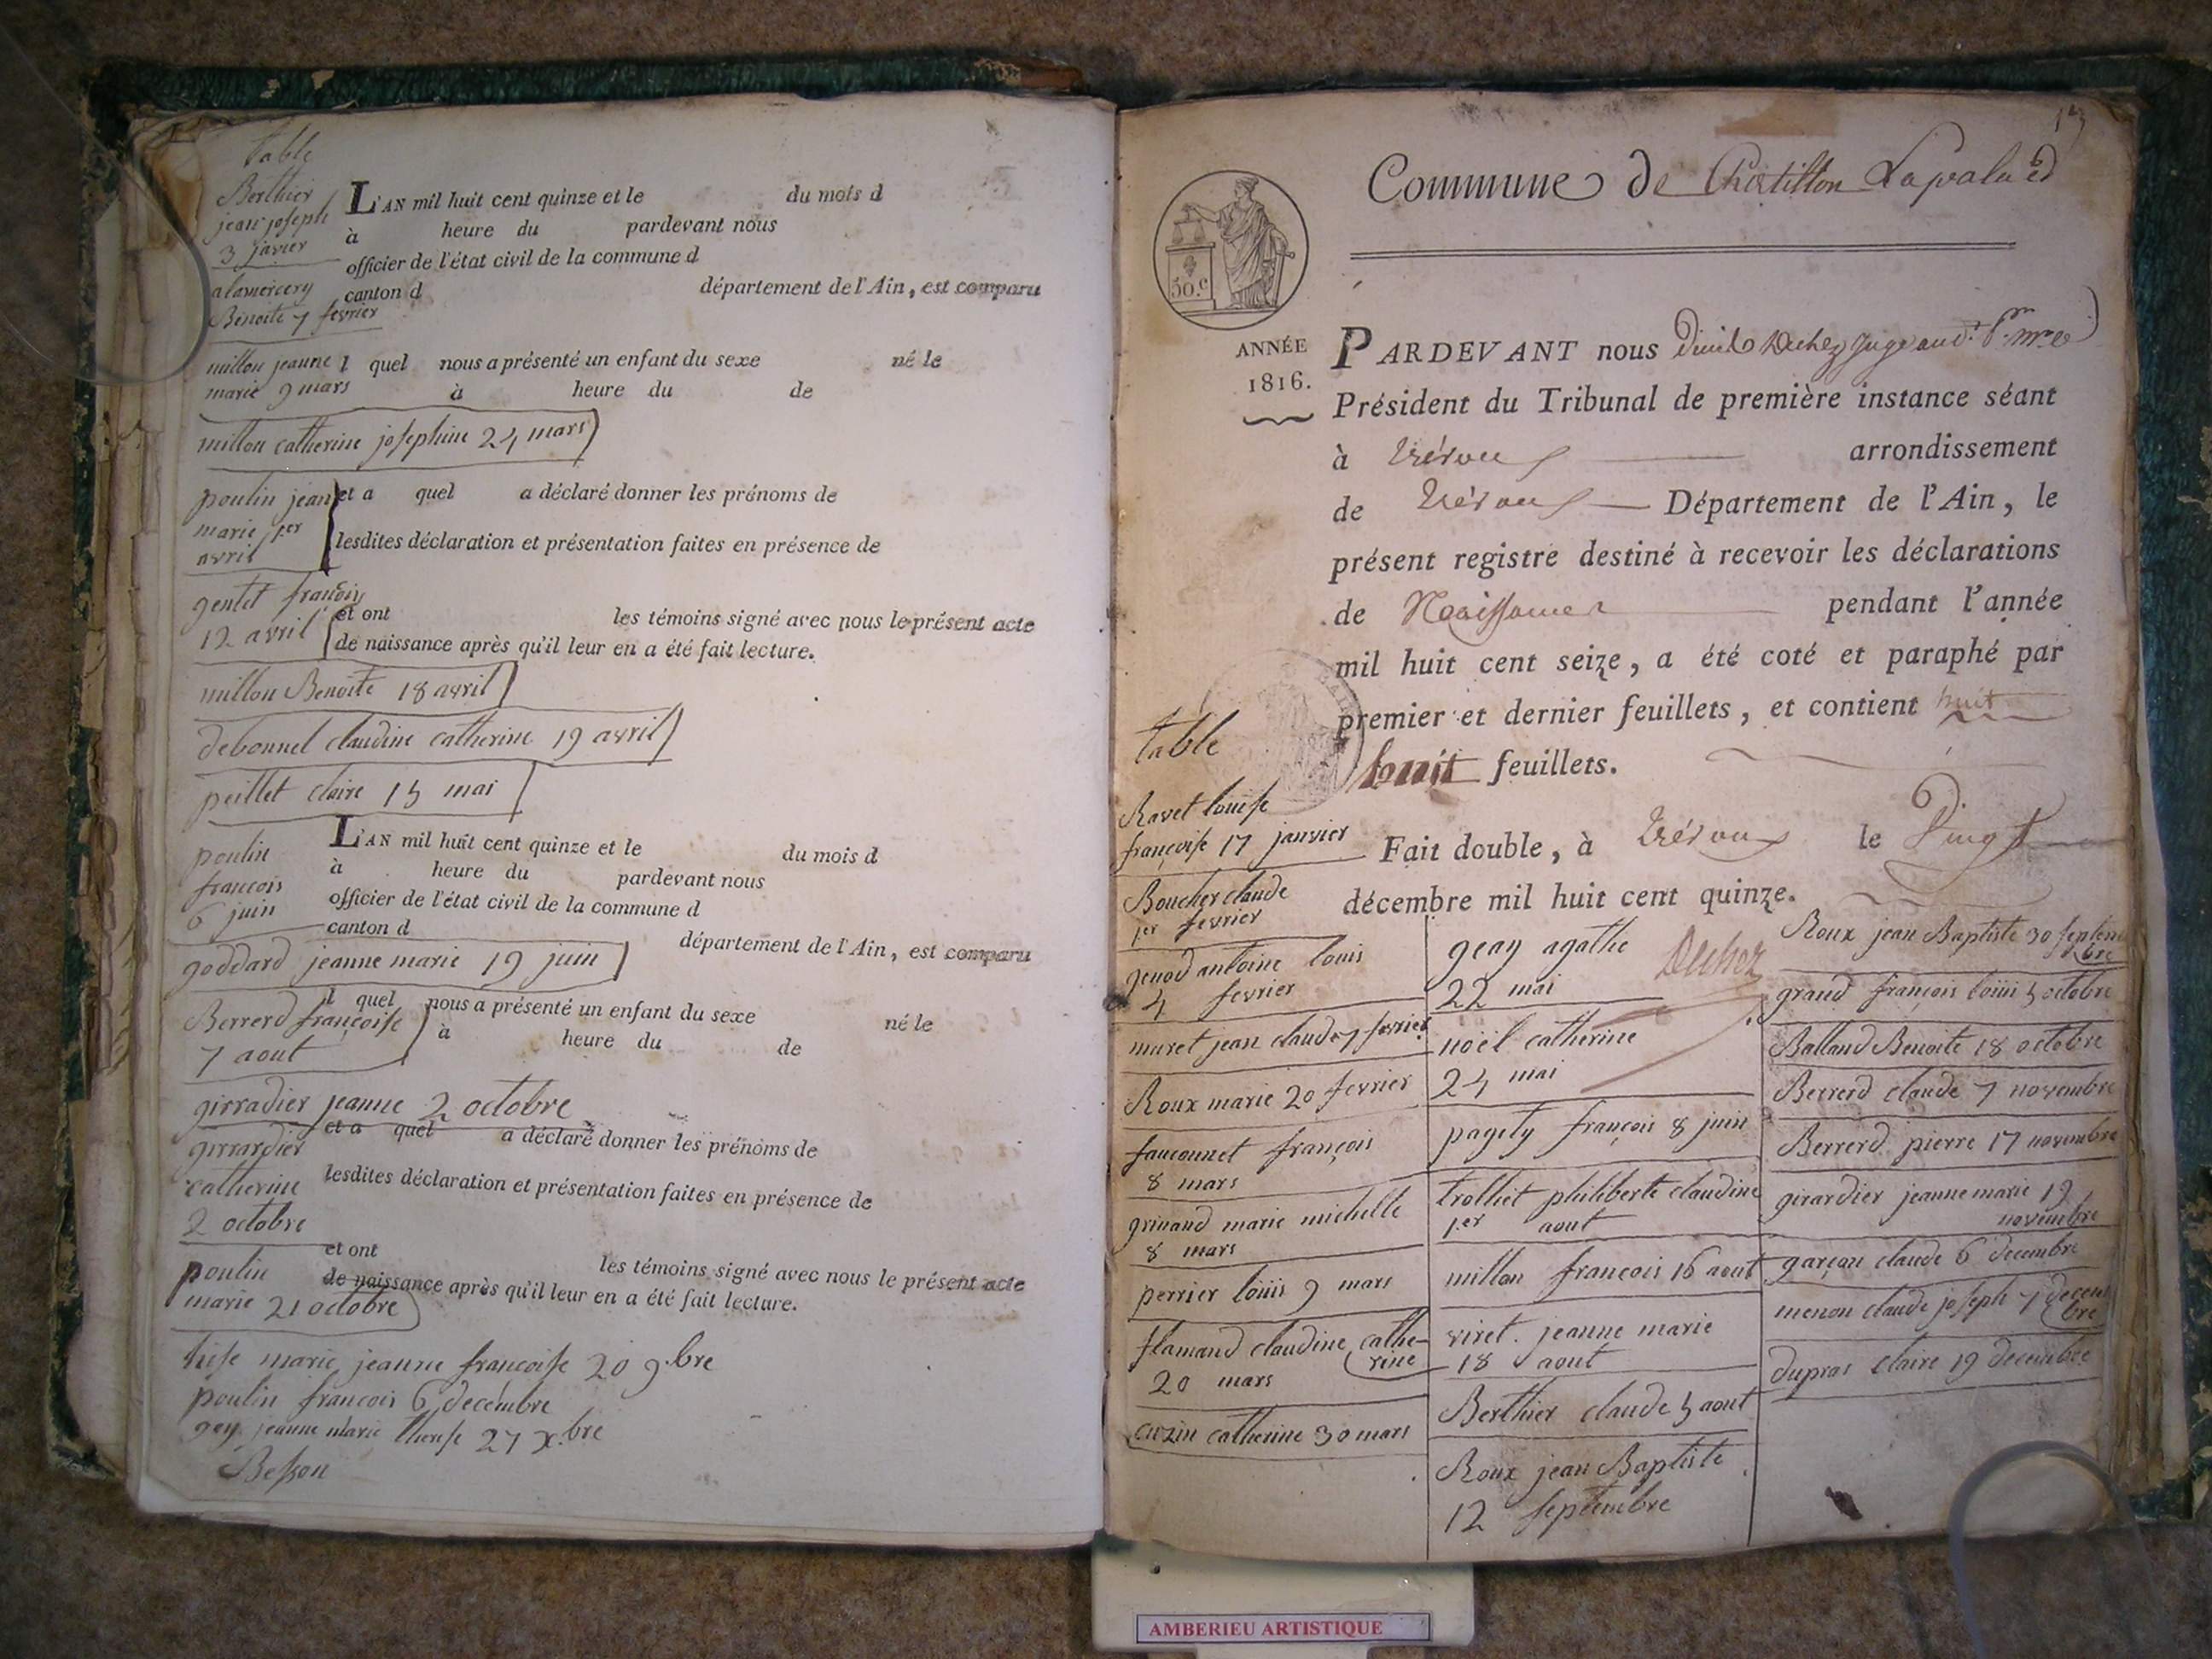 table
Berthier
jean joseph
3 janvier
alamercery
Benoite 7 fevrier
millon jeanne
marie 9 mars
millon catherine josephine 24 mars
poulin jean
marie 1er
avril
gentet francois
12 avril
millon Benoite 18 avril
debonnel claudine catherine 19 avril
peillet claire 15 mai
poulin
francois
6 juin
goddard jeanne marie 19 juin
Berrerd françoise
7 aout
girradier jeanne 2 octobre
girrardier
catherine
2 octobre
poulin
marie 21 octobre
marie jeanne francoise 20 9.bre
poulin francois 6 decembre
gey jeanne marie therese 27 X.bre
Besson
L'AN mil huit cent quinze et le du mois d
à heure du pardevant nous
officier de l'état civil de la commune d
canton d département de l'Ain, est comparu
l quel nous a présenté un enfant du sexe né le
à heure du de
et a quel a déclaré donner les prénoms de
lesdites déclaration et présentation faites en présence de
et ont les témoins signé avec nous le présent acte
de naissance après qu'il leur en a été fait lecture.
L'AN mil huit cent quinze et le du mois d
à heure du pardevant nous
officier de l'état civil de la commune d
canton d département de l'Ain, est comparu
l quel nous a présenté un enfant du sexe né le
à heure du de
et a quel a déclaré donner les prénoms de
lesdites déclaration et présentation faites en présence de
et ont les témoins signé avec nous le présent acte
de naissance après qu'il leur en a été fait lecture.
Commune de Chatillon Lapalud
50.c
ANNÉE
1816.
PARDEVANT nous Dechez juge
Président du Tribunal de première instance séant
à Trévoux arrondissement
de Trévoux Département de l'Ain, le
présent registre destiné à recevoir les déclarations
de Naissances pendant l'année
mil huit cent seize, a été coté et paraphé par
premier et dernier feuillets, et contient huit
huit feuillets.
Fait double, à Trévoux le Vingt
décembre mil huit cent quinze.
Dechez
table
Ravet louise
françoise 17 janvier
Boucher claude
1er fevrier
genod antoine louis
4 fevrier
muret jean claude 7 fevrier
Roux marie 20 fevrier
fauconnet françois
8 mars
grinand marie michelle
8 mars
perrier louis 9 mars
flamand claudine cathe-
rine
20 mars
cuzin catherine 30 mars
geay agathe
22 mai
noël catherine
24 mai
pagety françois 8 juin
trolliet philiberte claudine
1er aout
millon francois 16 aout
viret jeanne marie
18 aout
Berthier claude 5 aout
Roux jean Baptiste
12 septembre
Roux jean Baptiste 30 septem
bre
grand françois louis 5 octobre
Balland Benoite 18 octobre
Berrerd claude 7 novembre
Berrerd pierre 17 novembre
girardier jeanne marie 19
novembre
garçon claude 6 decembre
menon claude joseph 7 decem
bre
dupras claire 19 decembre
AMBERIEU ARTISTIQUE